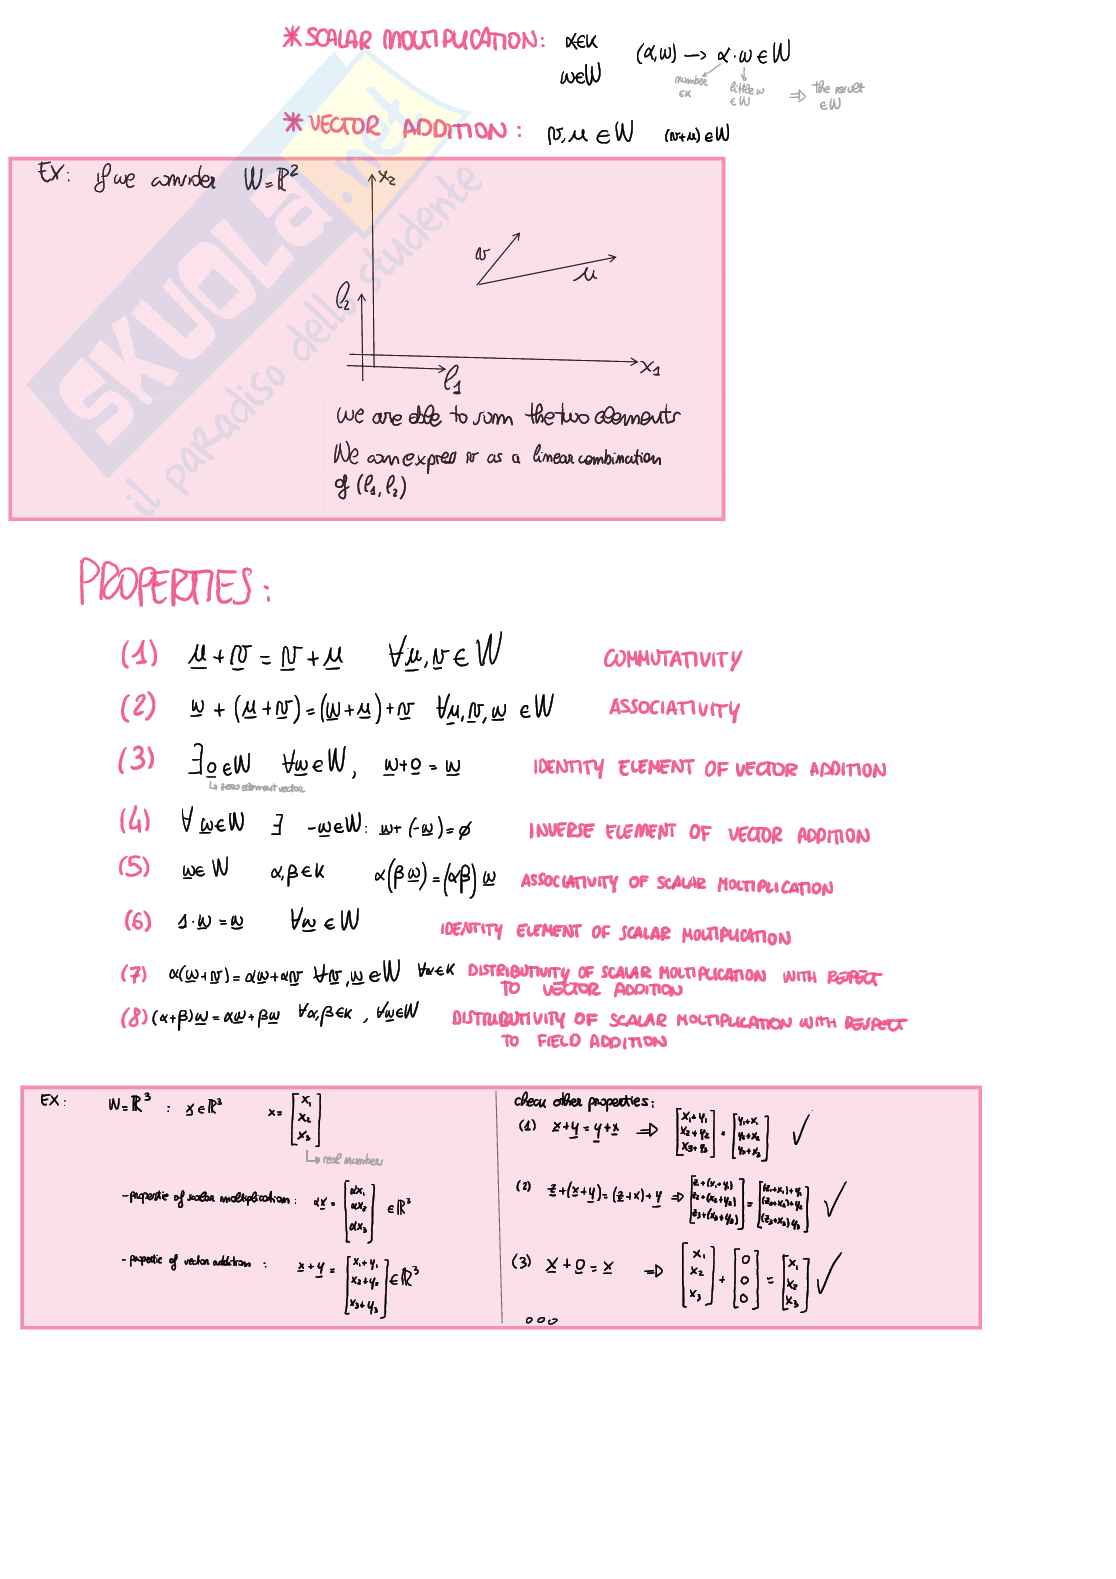 * SCALAR MOLTIPLICATION: α∈K (α,w) → α·w ∈ W
w∈W
number ∈K
little w ∈W
⇒ the result ∈W
* VECTOR ADDITION: v, u ∈ W (v+u) ∈ W
EX: if we consider W=ℝ²
x₂
v
u
l₂
x₁
l₁
we are able to sum the two elements
We can express v as a linear combination
of (l₁, l₂)
SKUOLA.net
il paradiso dello studente
PROPERTIES:
(1) u + v = v + u ∀u, v ∈ W COMMUTATIVITY
(2) w + (u + v) = (w + u) + v ∀u, v, w ∈ W ASSOCIATIVITY
(3) ∃ 0 ∈ W ∀w ∈ W, w + 0 = w IDENTITY ELEMENT OF VECTOR ADDITION
↳ zero element vector
(4) ∀ w∈W ∃ -w∈W: w+ (-w) = ø INVERSE ELEMENT OF VECTOR ADDITION
(5) w∈ W α, β ∈ K α(β w) = (αβ) w ASSOCIATIVITY OF SCALAR MOLTIPLICATION
(6) 1 · w = w ∀w ∈ W IDENTITY ELEMENT OF SCALAR MOLTIPLICATION
(7) α(w+v) = αw+αv ∀v, w ∈ W ∀α∈K DISTRIBUTIVITY OF SCALAR MOLTIPLICATION WITH RESPECT
TO VECTOR ADDITION
(8) (α+β)w = αw + βw ∀α,β∈K, ∀w∈W DISTRIBUTIVITY OF SCALAR MOLTIPLICATION WITH RESPECT
TO FIELD ADDITION
EX: W=ℝ³ : x∈ℝ³ x= [x₁ x₂ x₃]
↳ real number
- propertie of scalar moltiplication: αx = [αx₁ αx₂ αx₃] ∈ℝ³
- propertie of vector addition: x + y = [x₁+y₁ x₂+y₂ x₃+y₃] ∈ℝ³
check other properties:
(1) x+y = y+x ⇒ [x₁+y₁ x₂+y₂ x₃+y₃] = [y₁+x₁ y₂+x₂ y₃+x₃] ✓
(2) z+(x+y) = (z+x)+y ⇒ [z₁+(x₁+y₁) z₂+(x₂+y₂) z₃+(x₃+y₃)] = [(z₁+x₁)+y₁ (z₂+x₂)+y₂ (z₃+x₃)y₃] ✓
(3) x + 0 = x ⇒ [x₁ x₂ x₃] + [0 0 0] = [x₁ x₂ x₃] ✓
ooo